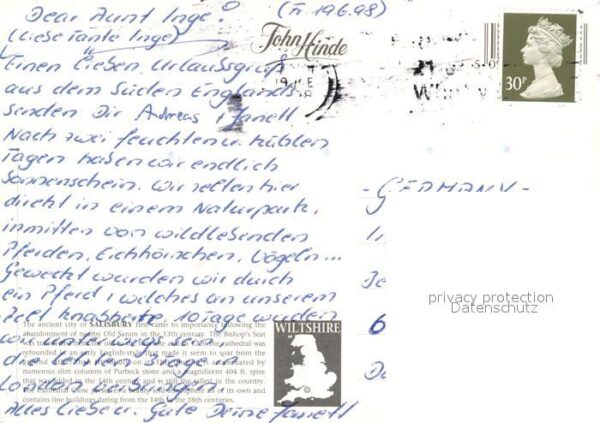 Dear Aunt Inge! (Fr 19.6.98)
(Liebe Tante Inge)
John Hinde
30P
Einen lieben Urlaubsgruß
aus dem Süden Englands
senden Dir Andreas + Janett
Nach zwei feuchten u. kühlen
Tagen haben wir endlich
Sonnenschein. Wir zelten hier
direkt in einem Naturpark,
inmitten von wildlebenden
Pferden, Eichhörnchen, Vögeln...
Geweckt wurden wir durch
ein Pferd, welches an unserem
Zelt knabberte. 10 Tage wurden
wir unterwegs sein
die letzten 3 Tage in
London verbringen.
Alles Liebe u. Gute Deine Janett
- GERMANY -
privacy protection
Datenschutz
6
The ancient city of SALISBURY first came to importance following the
abandonment of nearby Old Sarum in the 13th century. The Bishop's Seat
was cathedral was
refounded in an early English style that made it to soar from the
numerous slim columns of Purbeck stone and a magnificent 404 ft. spire
that was added in the 14th century and is still the tallest in the country.
The Cathedral Close as of its own and
contains fine buildings dating from the 14th to the 18th centuries.
WILTSHIRE